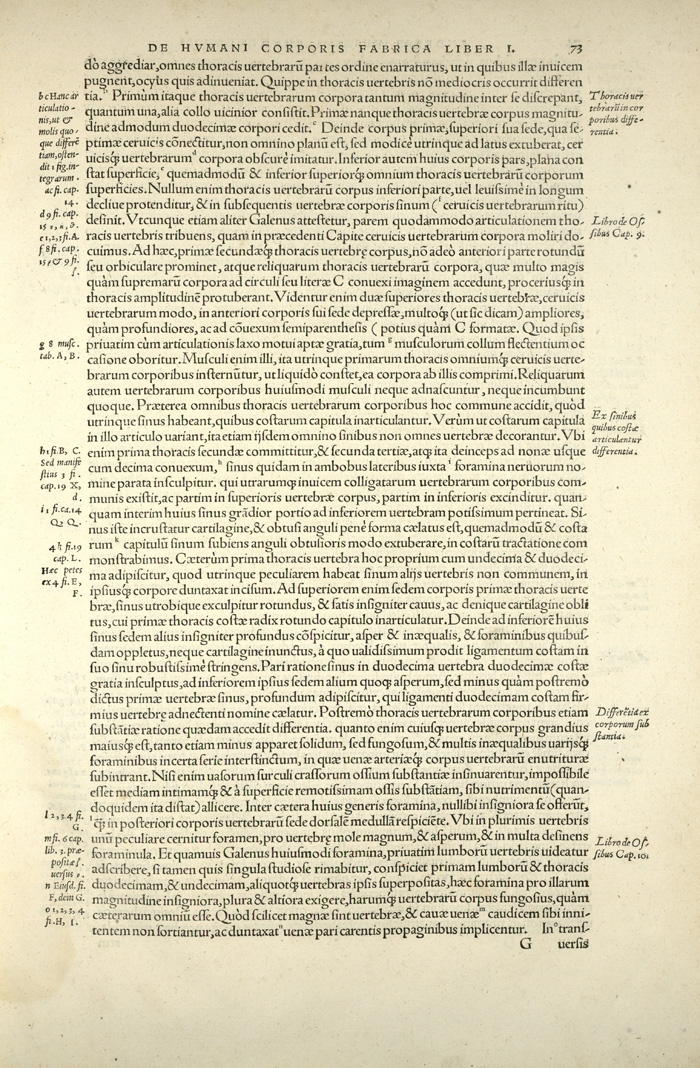 DE HVMANI CORPORIS FABRICA LIBER I. 73
dò aggrediar, omnes thoracis uertebrarũ partes ordine enarraturus, ut in quibus illæ inuicem
pugnent, ocyus quis adinueniat. Quippe in thoracis uertebris nõ mediocris occurrit differen
tia. Primùm itaque thoracis uertebrarum corpora tantum magnitudine inter se discrepant,
quantum una, alia collo uicinior consistit. Primæ nanque thoracis uertebræ corpus magnitu-
dine admodum duodecimæ corpori cedit. Deinde corpus primæ, superiori sua sede, qua se-
ptimæ ceruicis cõnectitur, non omnino planũ est, sed modicè utrinque ad latus extuberat, cer
uicisq́; uertebrarum d corpora obscurè imitatur. Inferior autem huius corporis pars, plana con
stat superficie, e quemadmodũ & inferior superiorq́; omnium thoracis uertebrarũ corporum
superficies. Nullum enim thoracis uertebrarũ corpus inferiori parte, uel leuissimè in longum
decliue protenditur, & in subsequentis uertebræ corporis sinum (f ceruicis uertebrarum ritu)
desinit. Vtcunque etiam aliter Galenus attestetur, parem quodammodo articulationem tho-
racis uertebris tribuens, quam in præcedenti Capite ceruicis uertebrarum corpora moliri do-
cuimus. Ad hæc, primæ secundæq́; thoracis uertebrę corpus, nõ adeò anteriori parte rotundũ
seu orbiculare prominet, atque reliquarum thoracis uertebrarũ corpora, quæ multo magis
quàm supremarũ corpora ad circuli seu literæ C conuexi imaginem accedunt, proceriusq́; in
thoracis amplitudinẽ protuberant. Videntur enim duæ superiores thoracis uertebræ, ceruicis
uertebrarum modo, in anteriori corporis sui sede depressæ, multoq́; (ut sic dicam) ampliores,
quàm profundiores, ac ad cõuexum semiparenthesis ( potius quàm C formatæ. Quod ipsis
priuatim cùm articulationis laxo motui aptæ gratia, tum g musculorum collum flectentium oc
casione oboritur. Musculi enim illi, ita utrinque primarum thoracis omniumq́; ceruicis uerte-
brarum corporibus insternũtur, ut liquidò constet, ea corpora ab illis comprimi. Reliquarum
autem uertebrarum corporibus huiusmodi musculi neque adnascuntur, neque incumbunt
quoque. Præterea omnibus thoracis uertebrarum corporibus hoc commune accidit, quòd
utrinque sinus habeant, quibus costarum capitula inarticulantur. Verùm ut costarum capitula
in illo articulo uariant, ita etiam ijsdem omnino sinibus non omnes uertebræ decorantur. Vbi
enim prima thoracis secundæ committitur, & secunda tertiæ, atq́; ita deinceps ad nonæ usque
cum decima conuexum, h sinus quidam in ambobus lateribus iuxta i foramina neruorum no-
mine parata insculpitur. qui utrarumq́; inuicem colligatarum uertebrarum corporibus com-
munis existit, ac partim in superioris uertebræ corpus, partim in inferioris exciditur. quan-
quam interim huius sinus grãdior portio ad inferiorem uertebram potissimum pertineat. Si-
nus iste incrustatur cartilagine, & obtusi anguli penè forma cælatus est, quemadmodũ & costa
rum k capitulũ sinum subiens anguli obtusioris modo extuberare, in costarũ tractatione com
monstrabimus. Cæterùm prima uertebra hoc proprium cum undecima & duodeci-
ma adipiscitur, quod utrinque peculiarem habeat sinum alijs uertebris non communem, in
ipsiusq́; corpore duntaxat incisum. Ad superiorem enim sedem corporis primæ thoracis uerte
bræ, sinus utrobique exculpitur rotundus, & satis insigniter cauus, ac denique cartilagine obli
tus, cui primæ thoracis costæ radix rotundo capitulo inarticulatur. Deinde ad inferiorẽ huius
sinus sedem alius insigniter profundus cõspicitur, asper & inæqualis, & foraminibus quibus-
dam oppletus, neque cartilagine inunctus, à quo ualidissimum prodit ligamentum costam in
suo sinu robustissimè stringens. Pari ratione sinus in duodecima uertebra duodecimæ costæ
gratia insculptus, ad inferiorem ipsius sedem alium quoq́; asperum, sed minus quàm postremò
dictus primæ uertebræ sinus, profundum adipiscitur, qui ligamenti duodecimam costam fir-
mius uertebrę adnectenti nomine cælatur. Postremò thoracis uertebrarum corporibus etiam
substãtiæ ratione quædam accedit differentia. quanto enim cuiusq́; uertebræ corpus grandius
maiusq́; est, tanto etiam minus apparet solidum, sed fungosum, & multis inæqualibus uarijsq́;
foraminibus incerta serie interstinctum, in quæ uenæ arteriæq́; corpus uertebrarũ enutrituræ
subintrant. Nisi enim uasorum surculi crassorum ossium substantiæ insinuarentur, impossibile
esset mediam intimamq́; & à superficie remotissimam ossis substãtiam, sibi nutrimentũ (quan-
doquidem ita distat) allicere. Inter cætera huius generis foramina, nullibi insigniora se offerũt,
l q̃; in posteriori corporis uertebrarũ sede dorsalẽ medullã respiciẽte. Vbi in plurimis uertebris
unũ peculiare cernitur foramen, pro uertebræ mole magnum, & asperum, & in multa desinens
foraminula. Et quamuis Galenus huiusmodi foramina, priuatim lumborũ uertebris uideatur
adscribere, si tamen quis singula studiosè rimabitur, conspiciet primam lumborũ & thoracis
duodecimam, & undecimam, aliquotq́; uertebras ipsis superpositas, hæc foramina pro illarum
magnitudine insigniora, plura & altiora exigere, harumq́; uertebrarũ corpus fungosius, quàm
cæterarum omniũ esse. Quòd scilicet magnæ sint uertebræ, & cauæ uenæ m caudicem sibi inni-
tentem non sortiantur, ac duntaxat n uenæ pari carentis propaginibus implicentur. In o trans-
G uersis
b c Hanc ar
ticulatio-
nis, ut &
molis quo-
que differẽ
tiam, osten-
dit 1 fig. in-
tegrarum.
ac fi. cap.
14.
d 9 fi. cap.
e 1,2,3 fi. A.
f 8 fi. cap.
15, & 9 fi.
g 8 musc.
tab. A, B.
h 1 fi. B, C.
Sed manife
stius 3 fi.
cap. 19 X,
d.
i 1 fi. ca. 14
Q, Q.
4 k fi. 19
cap. L.
Hæc petes
ex 4 fi. E,
F.
l 2, 3, 4 fi.
G.
m fi. 6 cap.
lib. 3. præ-
positæ f.
uersus
n Eiusd. fi.
F, dein G.
o 1, 2, 3, 4
fi. H, I.
Thoracis uer
tebrarũ in cor
poribus diffe-
rentia.
Libro de Os-
sibus Cap. 9.
Ex sinibus
quibus costæ
articulantur
differentia.
Differẽtia ex
corporum sub
stantia.
Libro de Os-
sibus Cap. 10.